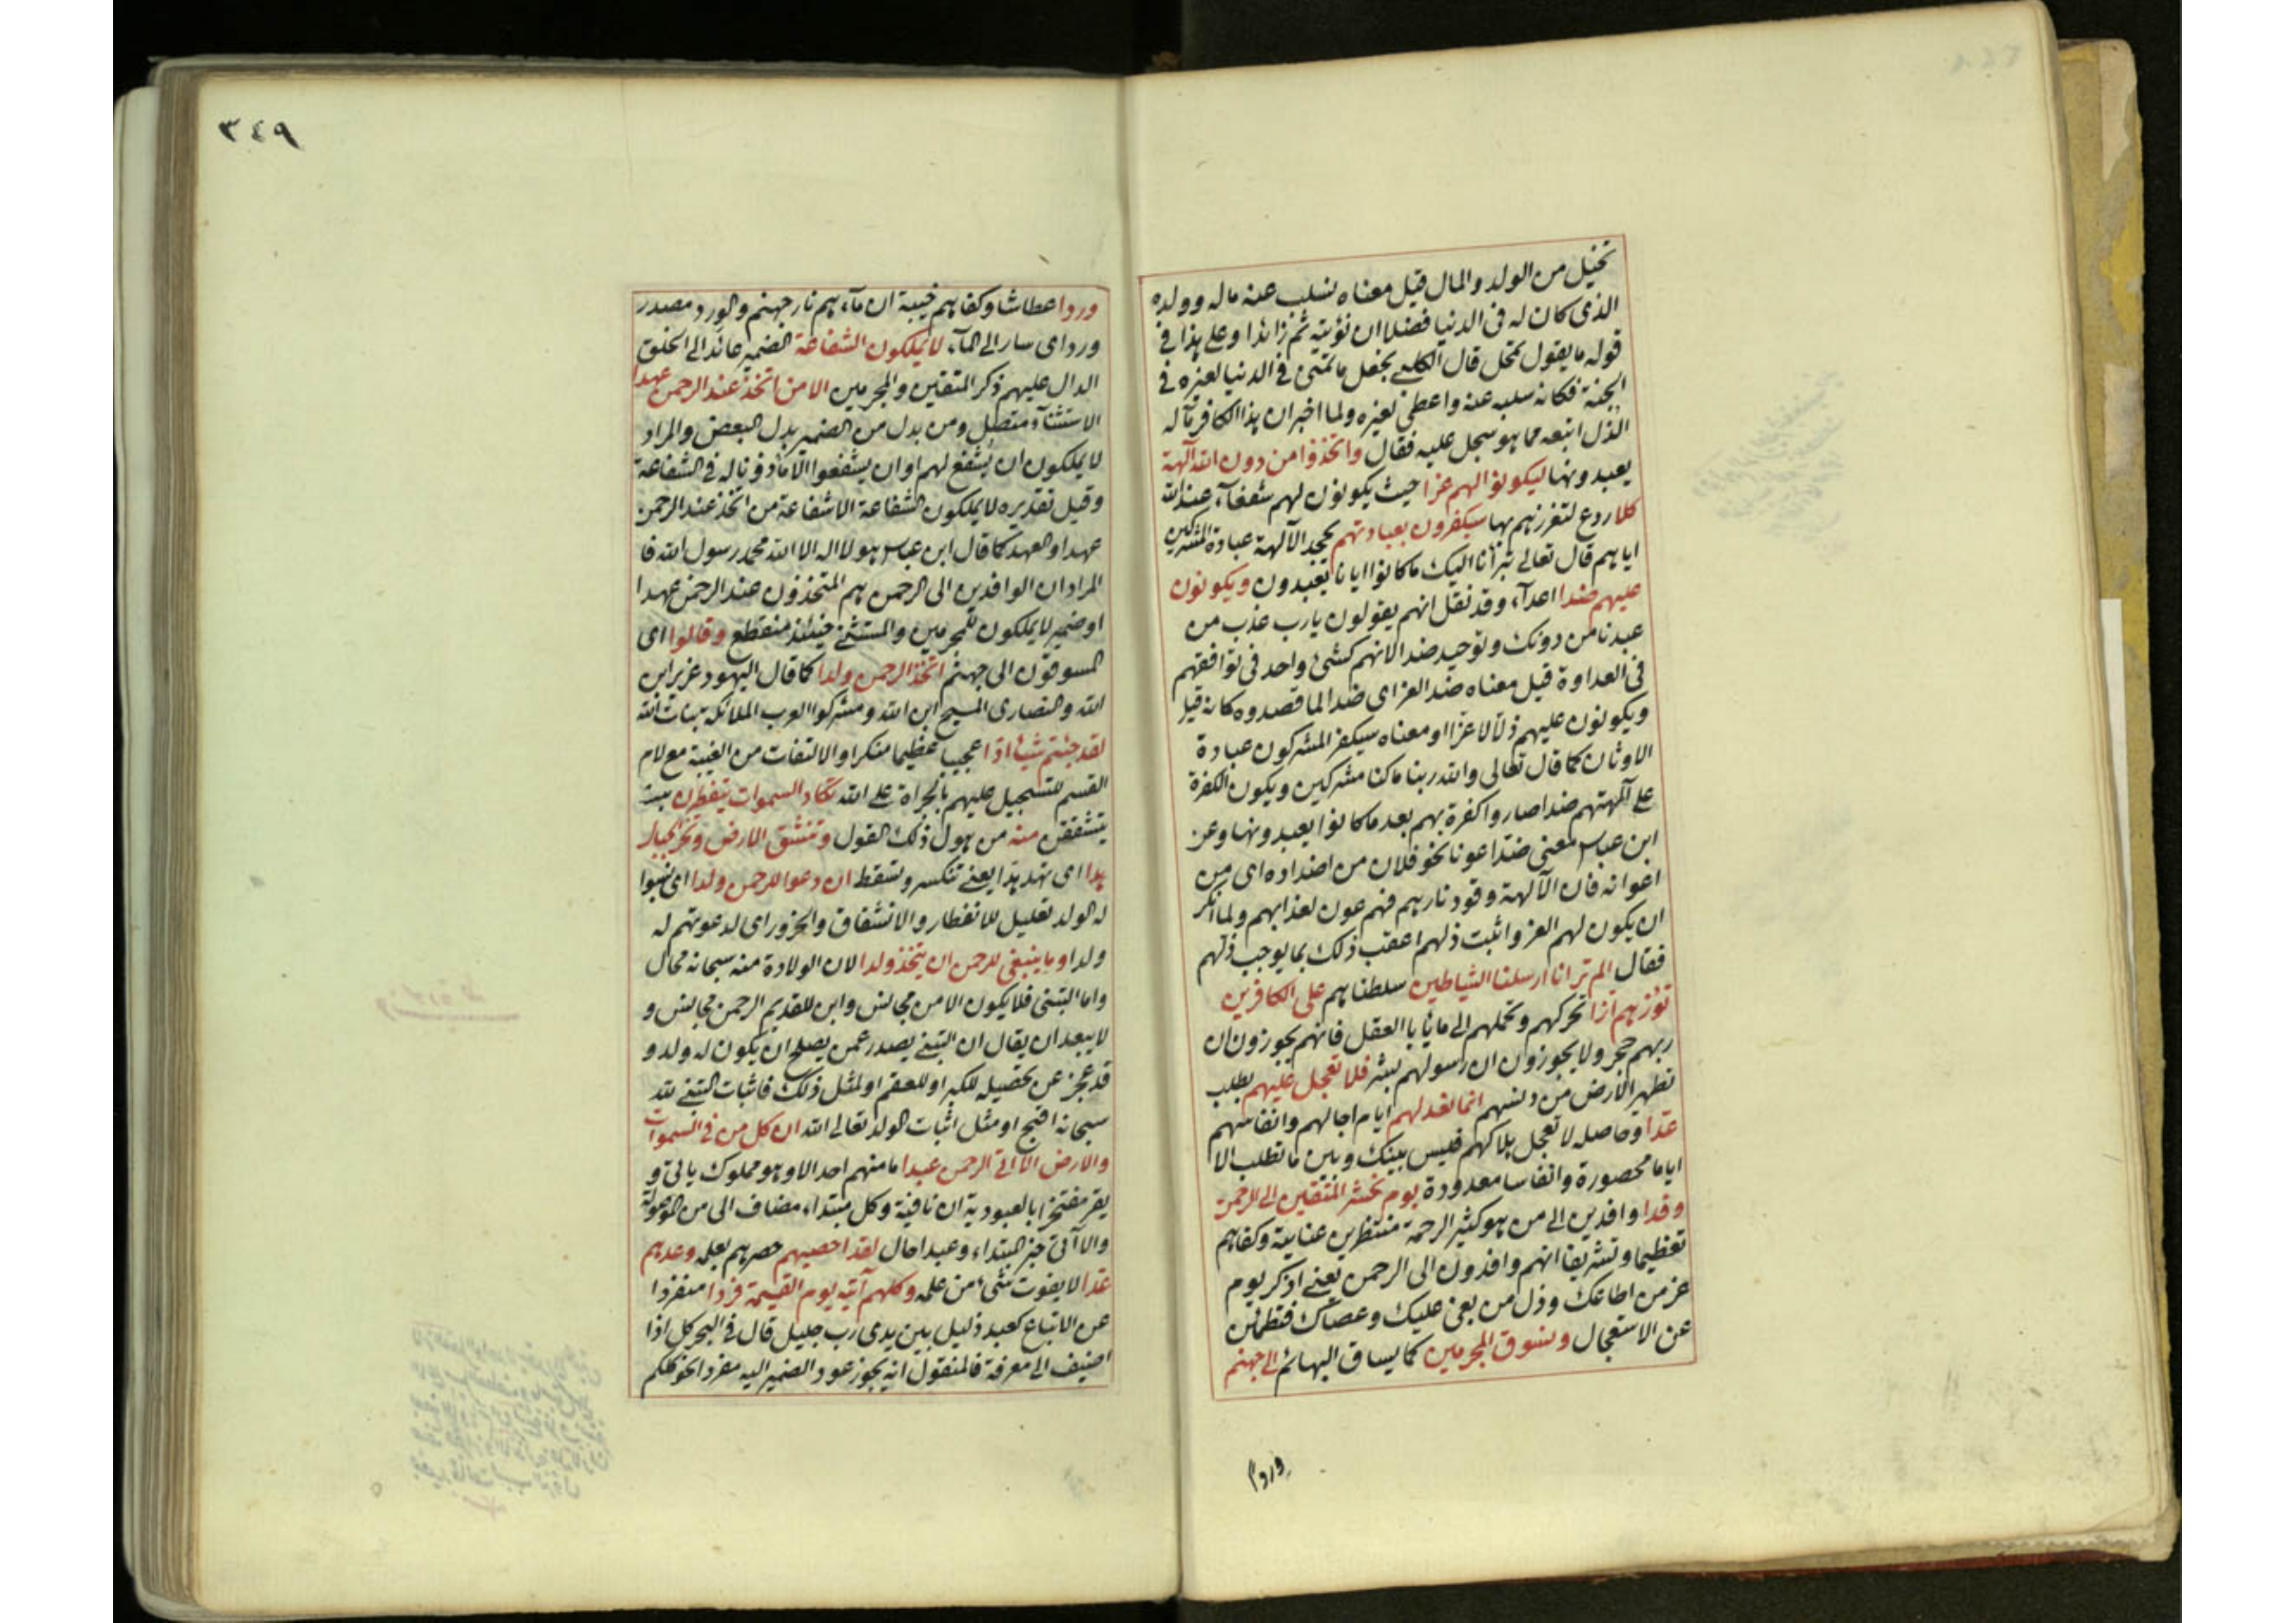 تخيل من الولد والمال قيل معناه نسلب عنه ماله وولده
الذى كان له فى الدنيا فضلا ان نؤتيه ثم زائدا وعلى هذا فى
قوله ما يقول تمحل قال الكلبى نجعل ما تمنى فى الدنيا لغيره فى
الجنة فكانه سلبه عنه واعطى لغيره ولما اخبر ان هذا الكافر مآله
الذل اتبعه مما هو سجل عليه فقال واتخذوا من دون الله آلهة
يعبدونها ليكونوا لهم عزا حيث يكونون لهم شفعآء عند الله
كلا ردع لتعززهم بها سيكفرون بعبادتهم يجحد الآلهة عبادة المشركين
اياهم قال تعالى تبرأنا اليك ما كانوا ايانا يعبدون ويكونون
عليهم ضدا اعدآء وقد نقل انهم يقولون يا رب عذب من
عبدنا من دونك وتوحيد ضدا لانهم كشئ واحد فى توافقهم
فى العداوة قيل معناه ضد العز اى ضدا لما قصدوه كانه قيل
ويكونون عليهم ذلا لا عزا او معناه سيكفر المشركون عبادة
الاوثان كما قال تعالى والله ربنا ما كنا مشركين ويكون الكفرة
على آلهتهم ضدا صاروا كفرة بهم بعد ما كانوا يعبدونها وعن
ابن عباس معنى ضدا عونا نحو فلان من اضداده اى من
اعوانه فان الآلهة وقود نارهم فهم عون لعذابهم ولما انكر
ان يكون لهم العز واثبت ذلهم اعقب ذلك بما يوجب ذلهم
فقال الم تر انا ارسلنا الشياطين سلطناهم على الكافرين
تؤزهم ازا تحركهم وتحملهم الى ما يأباه العقل فانهم يجوزون ان
ربهم حجر ولا يجوزون ان رسولهم بشر فلا تعجل عليهم بطلب
تطهير الارض من دنسهم انما نعد لهم ايام اجالهم وانفاسهم
عدا وحاصله لا تعجل بهلاكهم فليس بينك وبين ما تطلب الا
اياما محصورة وانفاسا معدودة يوم نحشر المتقين الى الرحمن
وفدا وافدين الى من هو كثير الرحمة منتظرين عنايته وكفاهم
تعظيما وتشريفا انهم وافدون الى الرحمن يعنى اذكر يوم
عز من اطاعك وذل من بغى عليك وعصاك فتطمئن
عن الاستعجال ونسوق المجرمين كما يساق البهائم الى جهنم
وردا
٣٤٩
وردا عطاشا وكفاهم خيبة ان مآءهم نار جهنم والورد مصدر
ورد اى سار الى المآء لا يملكون الشفاعة الضمير عائد الى الخلق
الدال عليهم ذكر المتقين والمجرمين الا من اتخذ عند الرحمن عهدا
الاستثنآء متصل ومن بدل من الضمير بدل البعض والمراد
لا يملكون ان يشفع لهم او ان يشفعوا الا ماذونا له فى الشفاعة
وقيل تقديره لا يملكون الشفاعة الا شفاعة من اتخذ عند الرحمن
عهدا والعهد كما قال ابن عباس هو لا اله الا الله محمد رسول الله فا
المراد ان الوافدين الى الرحمن هم المتخذون عند الرحمن عهدا
او ضمير لا يملكون للمجرمين والمستثنى حينئذ منقطع وقالوا اى
المسوقون الى جهنم اتخذ الرحمن ولدا كما قال اليهود عزير ابن
الله والنصارى المسيح ابن الله ومشركوا العرب الملائكة بنات الله
لقد جئتم شيئا ادا عجيبا عظيما منكرا والالتفات من الغيبة مع لام
القسم للتسجيل عليهم بالجراة على الله تكاد السموات يتفطرن
يتشققن منه من هول ذلك القول وتنشق الارض وتخر الجبال
هدا اى تهد هدا يعنى تنكسر وتسقط ان دعوا للرحمن ولدا اى نسبوا
له الولد تعليل للانفطار والانشقاق والخرور اى لدعوتهم له
ولدا وما ينبغى للرحمن ان يتخذ ولدا لان الولادة منه سبحانه محال
واما التبنى فلا يكون الا من مجانس واين للقديم الرحمن مجانس و
لا يبعد ان يقال ان التبنى يصدر عمن يصلح ان يكون له ولد و
قد عجز عن تحصيله للكبر او للعقم او لمثل ذلك فاثبات التبنى لله
سبحانه اقبح او مثل اثبات الولد تعالى الله ان كل من فى السموات
والارض الا آتى الرحمن عبدا ما منهم احد الا وهو مملوك ياتى و
يقر مفتخرا بالعبودية ان نافية وكل مبتداء مضاف الى من الموصولة
والا آتى خبر المبتداء وعبدا حال لقد احصيهم حصرهم بعلمه وعدهم
عدا لا يفوت شئ من علمه وكلهم آتيه يوم القيمة فردا منفردا
عن الاتباع كعبد ذليل بين يدى رب جليل قال فى البحر كل اذا
اضيف الى معرفة فالمنقول انه يجوز عود الضمير اليه مفردا نحو كلكم